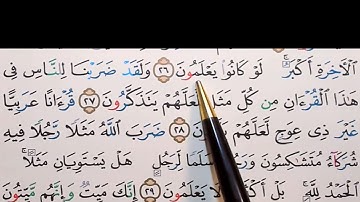 ٱلْأَخِرَةِ أَكْبَرُ ۚ لَوْ كَانُوا۟ يَعْلَمُونَ ٢٦ وَلَقَدْ ضَرَبْنَا لِلنَّاسِ فِى
هَٰذَا ٱلْقُرْءَانِ مِن كُلِّ لَّعَلَّهُمْ يَتَذَكَّرُونَ ٢٧ قُرْءَانًا عَرَبِيًّا
غَيْرَ ذِى عِوَجٍ لَّعَلَّهُمْ ٢٨ ضَرَبَ ٱللَّهُ مَثَلًا رَّجُلًا فِيهِ
شُرَكَآءُ مُتَشَٰكِسُونَ سَلَمًا لِّرَجُلٍ هَلْ يَسْتَوِيَانِ مَثَلًا ۚ
ٱلْحَمْدُ لِلَّهِ ۚ بَلْ لَا يَعْلَمُونَ ٢٩ إِنَّكَ مَيِّتٌ وَإِنَّهُم مَّيِّتُونَ